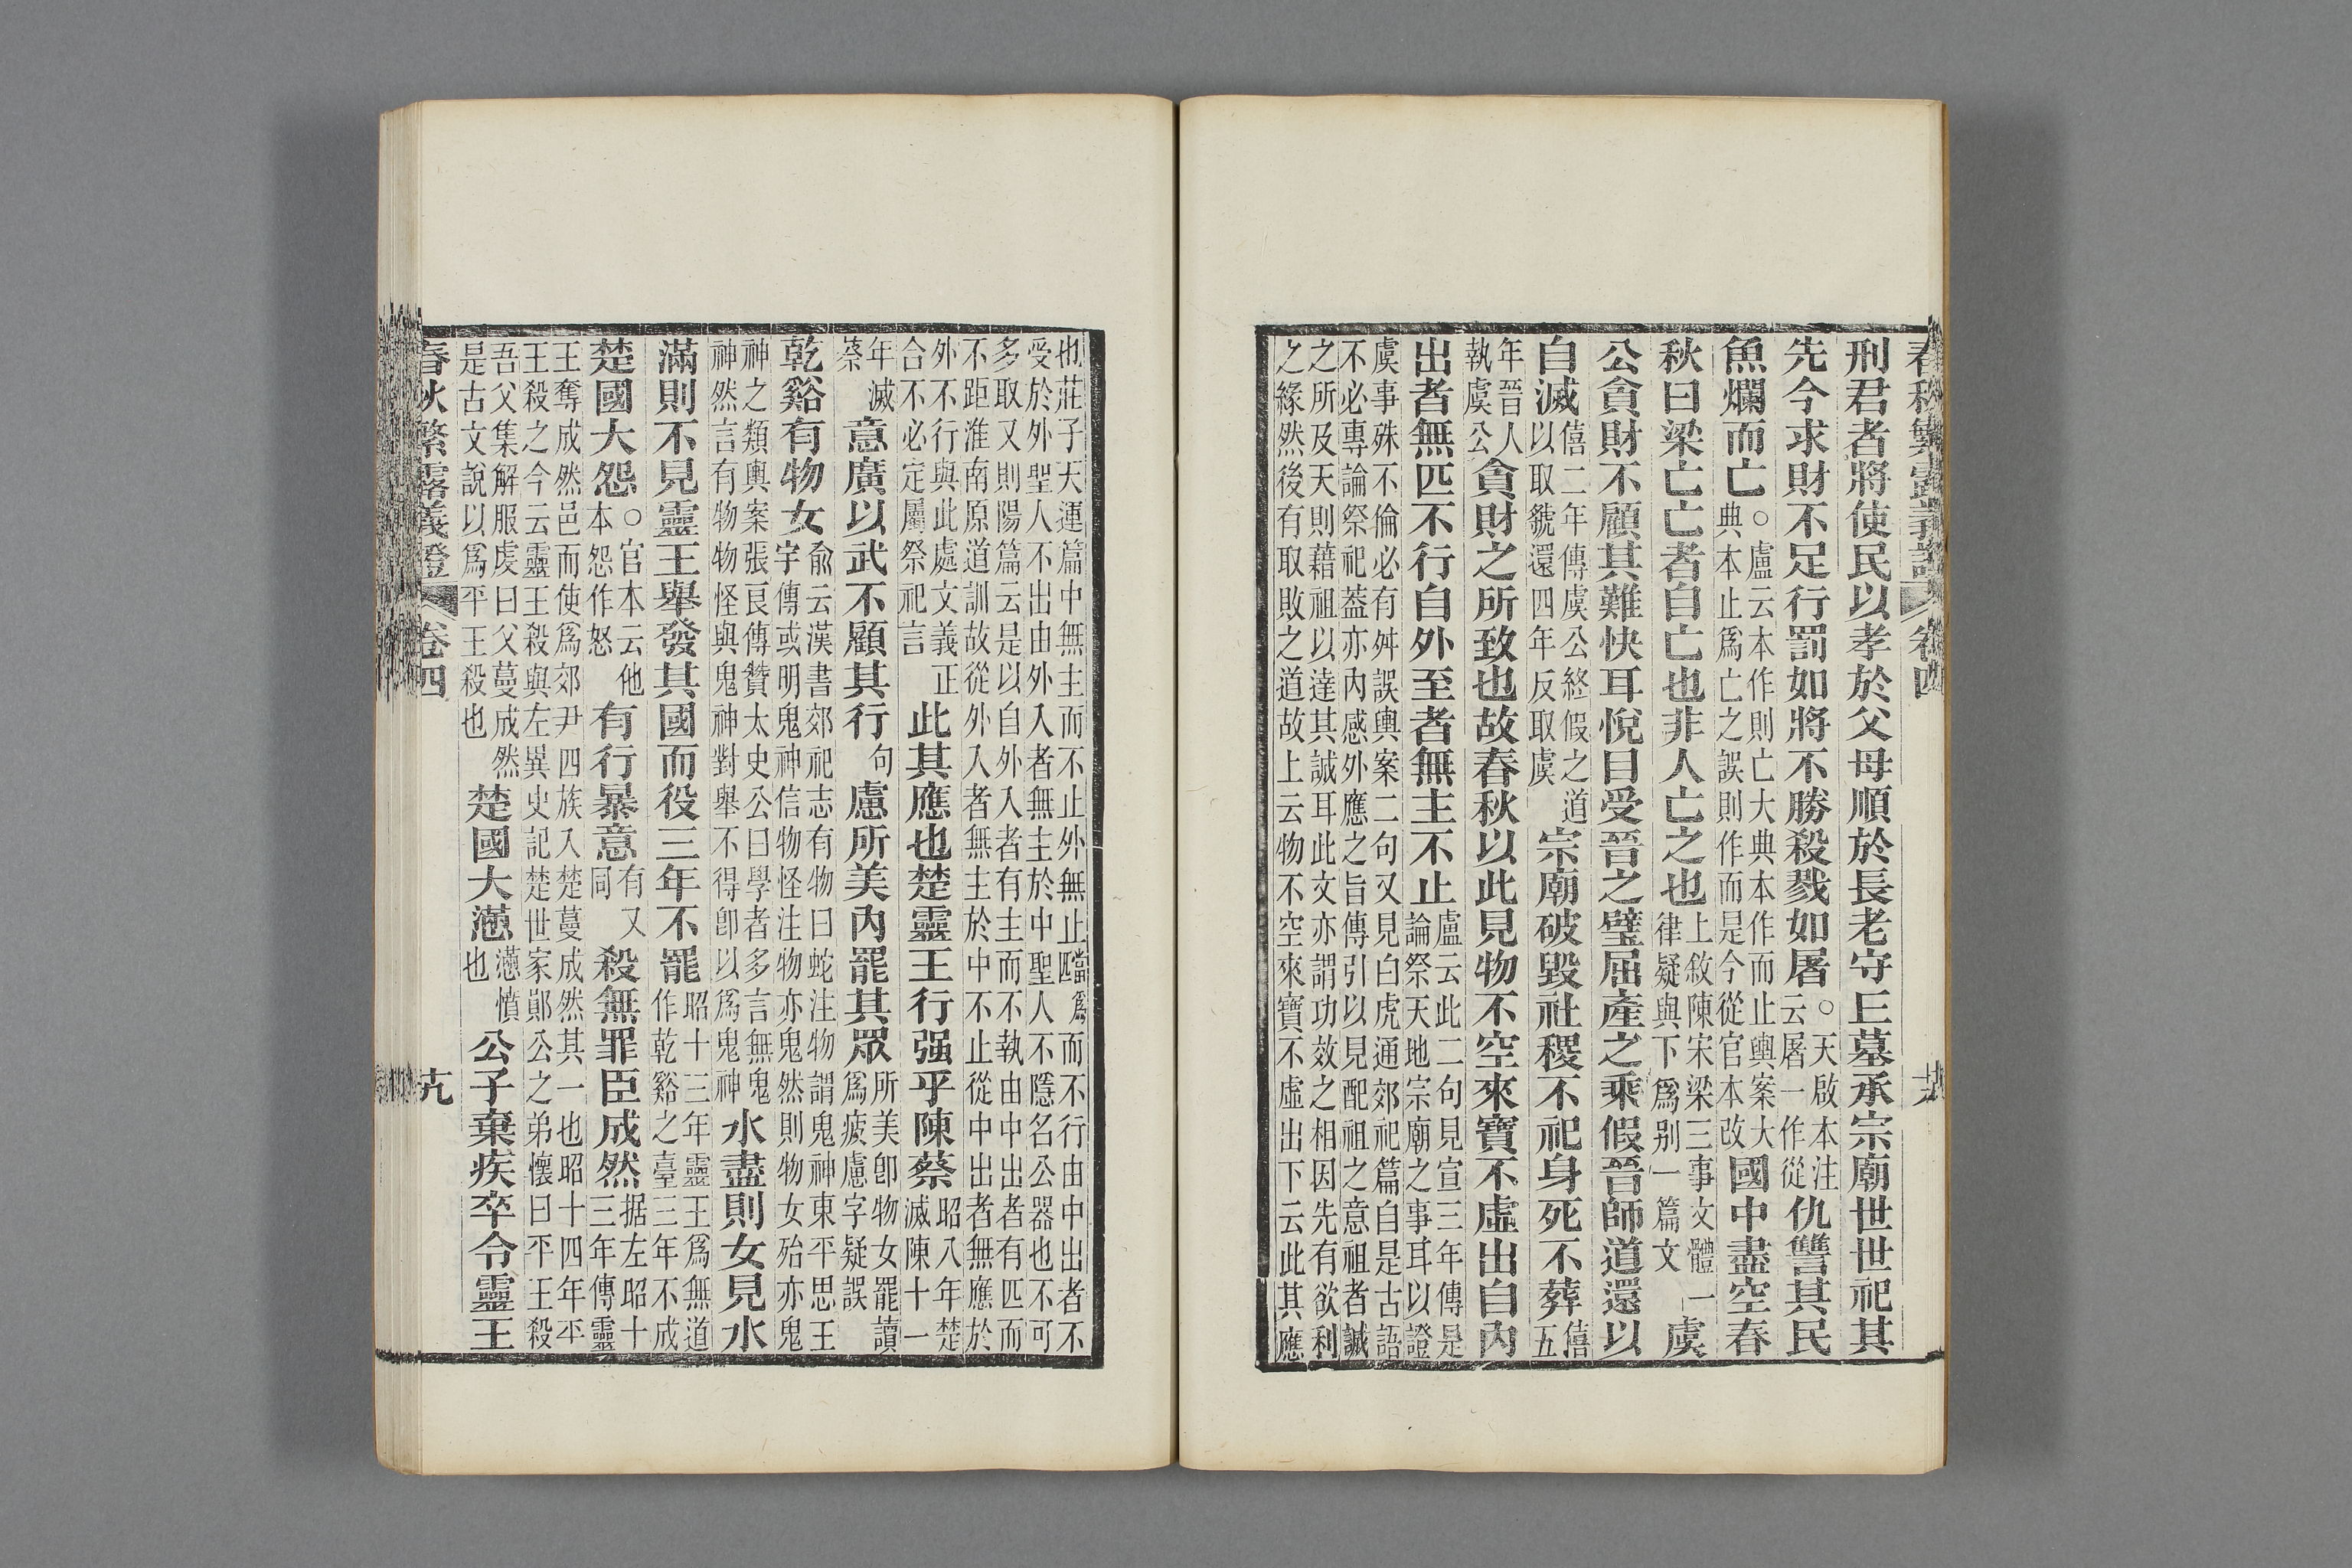 春秋繁露義證 卷四 十八
刑君者將使民以孝於父母順於長老守丘墓承宗廟世世祀其
先今求財不足行罰如將不勝殺戮如屠○天啟本注云屠一作從仇讐其民
魚爛而亡○盧云本作則亡大典本作而止輿案大典本止爲亡之誤則作而是今從官本改國中盡空春
秋曰梁亡亡者自亡也非人亡之也上敘陳宋梁三事文體一律疑與下爲別一篇文虞
公貪財不顧其難快耳悅目受晉之璧屈產之乘假晉師道還以
自滅僖二年傳虞公終假之道以取虢還四年反取虞宗廟破毀社稷不祀身死不葬僖五
年晉人執虞公貪財之所致也故春秋以此見物不空來寶不虛出自內
出者無匹不行自外至者無主不止盧云此二句見宣三年傳是論祭天地宗廟之事耳以證
虞事殊不倫必有舛誤輿案二句又見白虎通郊祀篇自是古語
不必專論祭祀葢亦內感外應之旨傳引以見配祖之意祖者誠
之所及天則藉祖以達其誠耳此文亦謂功效之相因先有欲利
之緣然後有取敗之道故上云物不空來寶不虛出下云此其應
也莊子天運篇中無主而不止外無止當爲匹而不行由中出者不
受於外聖人不出由外入者無主於中聖人不隱名公器也不可
多取又則陽篇云是以自外入者有主而不執由中出者有匹而
不距淮南原道訓故從外入者無主於中不止從中出者無應於
外不行與此處文義正合不必定屬祭祀言此其應也楚靈王行强乎陳蔡昭八年楚滅陳十一
年滅蔡意廣以武不顧其行句慮所美內罷其眾所美卽物女罷讀爲疲慮字疑誤
乾谿有物女俞云漢書郊祀志有物曰蛇注物謂鬼神東平思王字傳或明鬼神信物怪注物亦鬼然則物女殆亦鬼
神之類輿案張良傳贊太史公曰學者多言無鬼神然言有物物怪與鬼神對舉不得卽以爲鬼神水盡則女見水
滿則不見靈王舉發其國而役三年不罷昭十三年靈王爲無道作乾谿之臺三年不成
楚國大怨○官本云他本怨作怒有行暴意有又同殺無罪臣成然据左昭十三年傳靈
王奪成然邑而使爲郊尹四族入楚蔓成然其一也昭十四年平
王殺之今云靈王殺與左異史記楚世家鄖公之弟懷曰平王殺
吾父集解服虔曰父蔓成然是古文說以爲平王殺也楚國大懣懣憤也公子棄疾卒令靈王
春秋繁露義證 卷四 十九